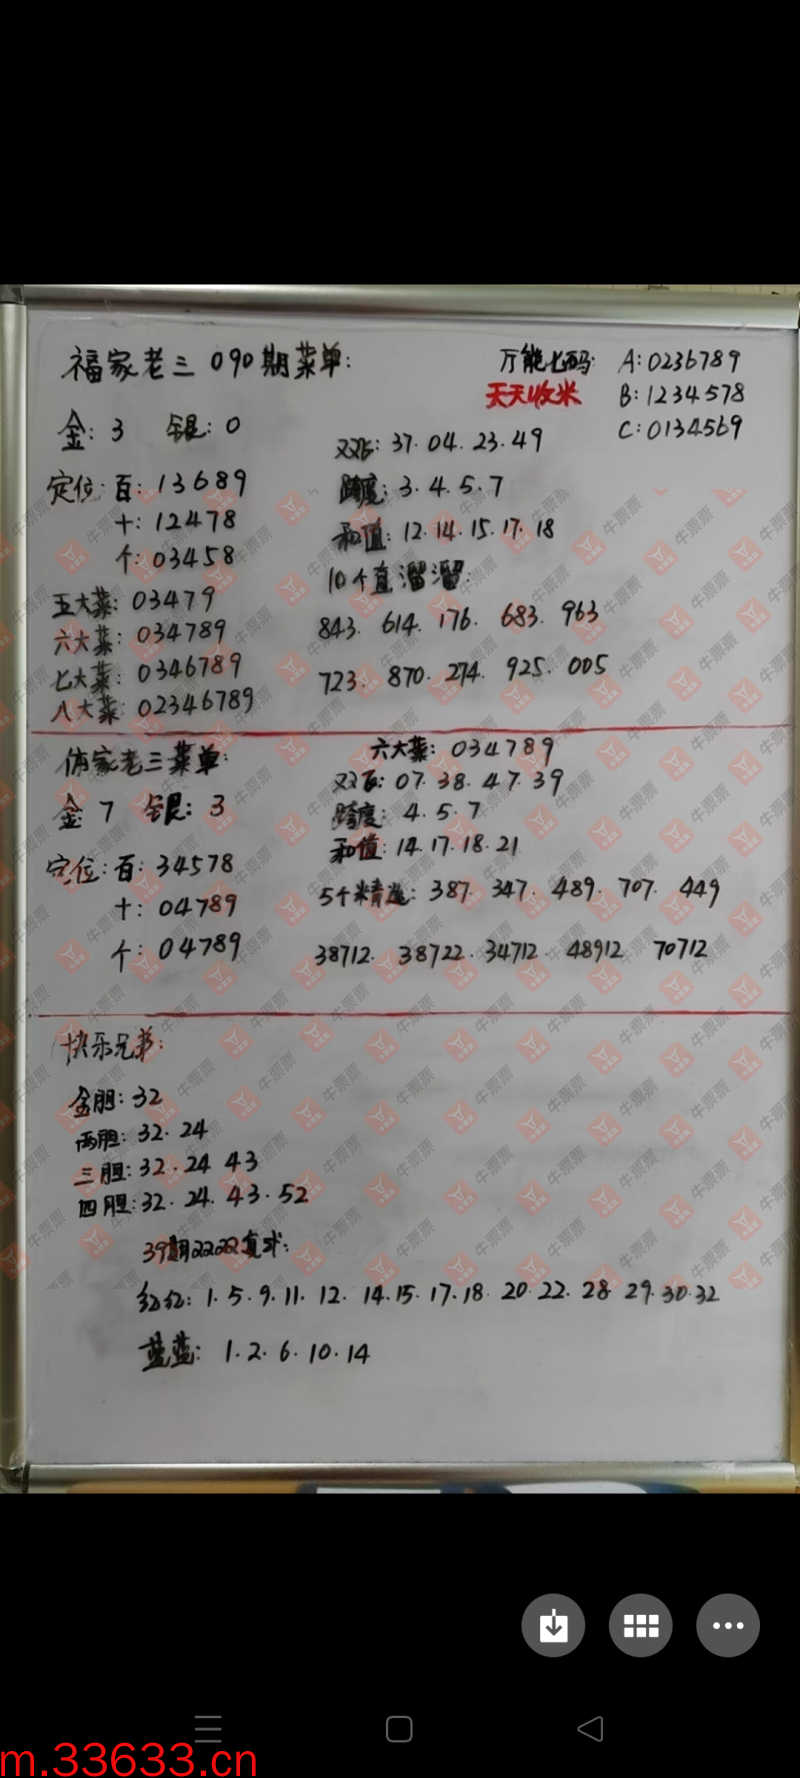 福家老三 090期菜单:
万能七码: A:0236789
天天收米 B:1234578
C:0134569
金: 3 银: 0
双飞: 37. 04. 23. 49
定位: 百: 13689
跨度: 3. 4. 5. 7
十: 12478
和值: 12. 14. 15. 17. 18
个: 03458
10个直溜溜:
五大菜: 03479
843. 614. 176. 683. 963
六大菜: 034789
七大菜: 0346789
723. 870. 274. 925. 005
八大菜: 02346789
体家老三菜单:
六大菜: 034789
双飞: 07. 38. 47. 39
金: 7 银: 3
跨度: 4. 5. 7
和值: 14. 17. 18. 21
定位: 百: 34578
5个精选: 387. 347. 489. 707. 449
十: 04789
个: 04789
38712. 38722. 34712 48912 70712
快乐兄弟:
金胆: 32
两胆: 32. 24
三胆: 32. 24 43
四胆: 32. 24. 43. 52
39期2222复式:
红红: 1. 5. 9. 11. 12. 14. 15. 17. 18. 20. 22. 28 29. 30. 32
蓝蓝: 1. 2. 6. 10. 14
牛票票
m.33633.cn